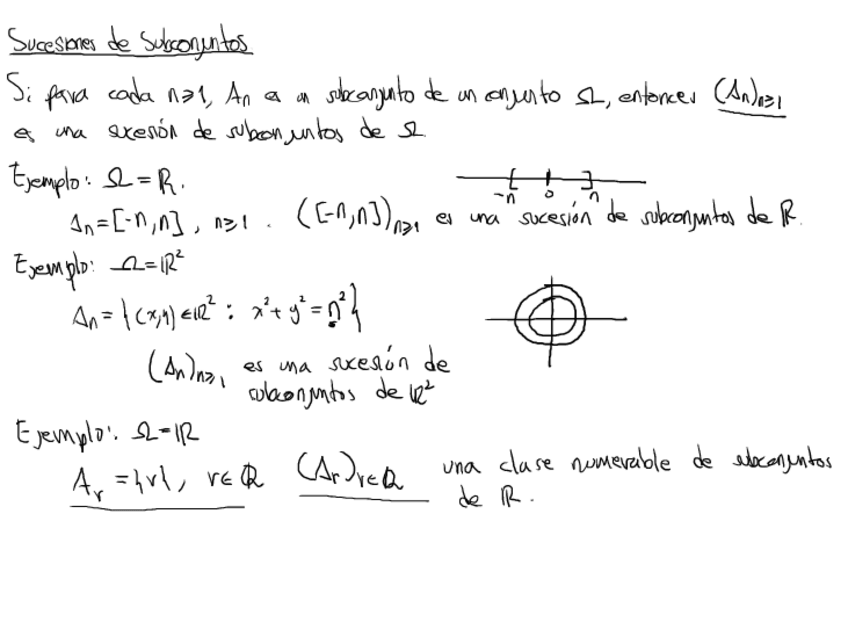 Sucesiones de Subconjuntos
Si para cada n≥1, An es un subconjunto de un conjunto Ω, entonces (An)n≥1
es una sucesión de subconjuntos de Ω
Ejemplo: Ω = R.
-n 0 n
An = [-n, n], n≥1. ([-n, n])n≥1 es una sucesión de subconjuntos de R.
Ejemplo: Ω = R²
An = {(x,y) ∈ R² : x² + y² = n²}
(An)n≥1 es una sucesión de
subconjuntos de R²
Ejemplo: Ω = R
Ar = {r}, r ∈ Q (Ar)r∈Q una clase numerable de subconjuntos
de R.